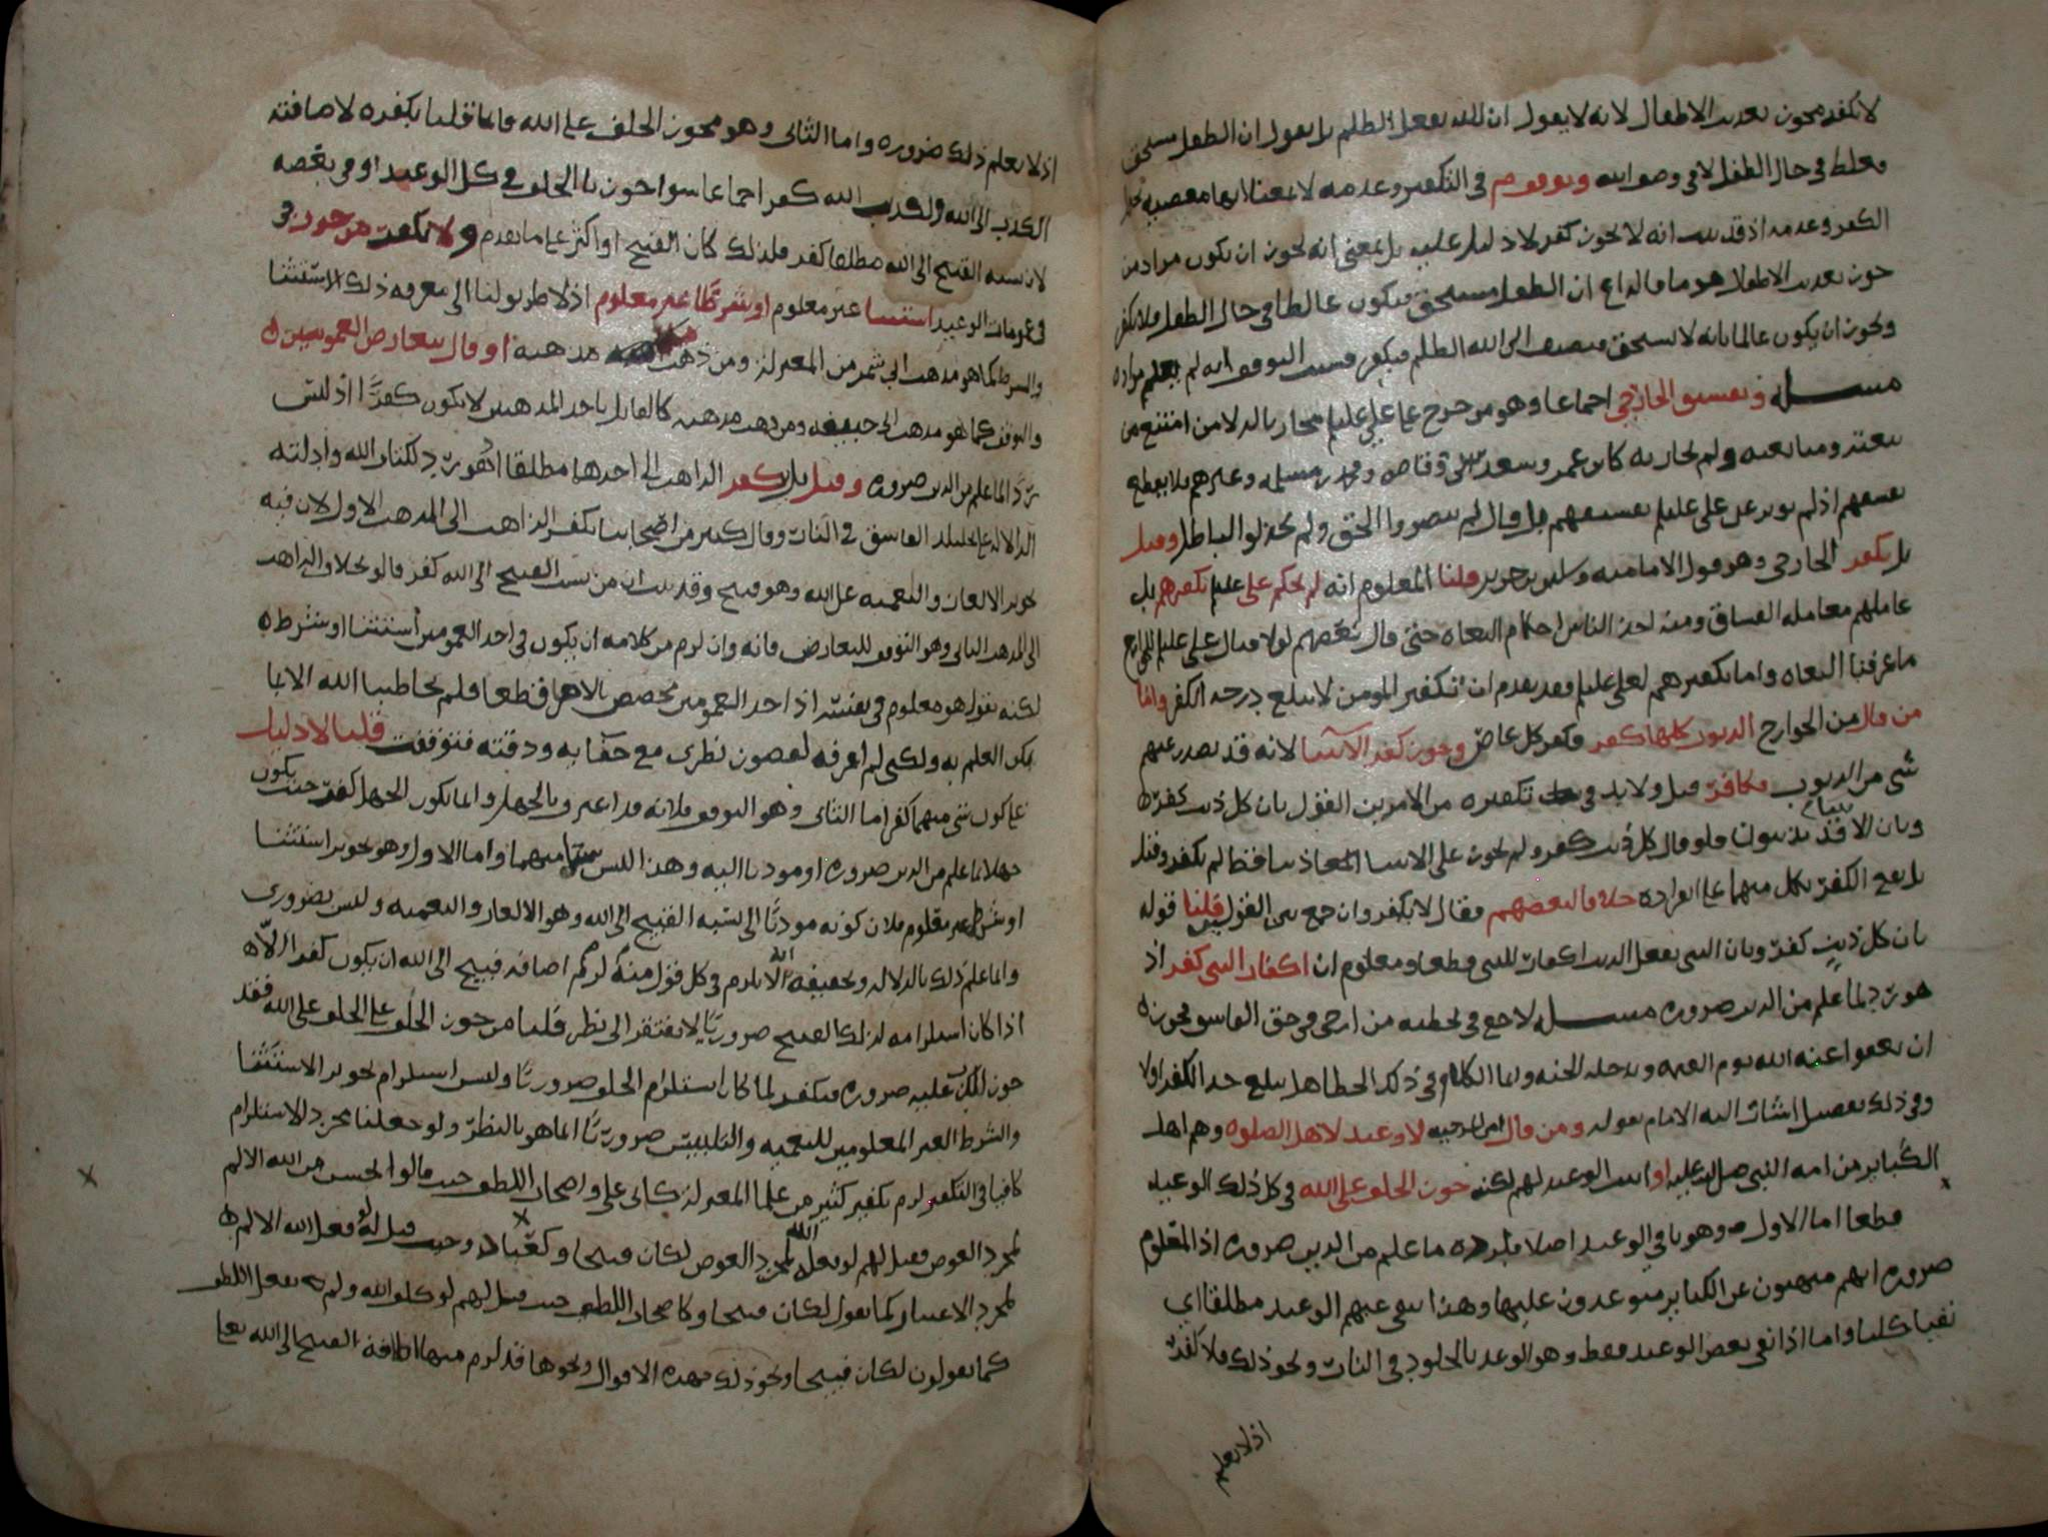 لا نكفر مجوز تعذيب الاطفال لانه لا يقول ان الله يفعل الظلم بل يقول ان الطفل مستحق
فغلط في حال الطفل لا في وصف الله وتوقف م في التكفير وعدمه لا بمعنى انها معصية
الكفر وعدمه اذ قد ثبت انه لا يجوز كفر لا دليل عليه بل بمعنى انه يجوز ان يكون مراد من
جوز تعذيب الاطفال هو ما قاله ان الطفل مستحق فيكون غالطا في حال الطفل فلا يكفر
ويجوز ان يكون عالما بانه لا يستحق فيضيف الى الله الظلم فيكفر فسبب التوقف انه لم يعلم مراده
مسله وتفسيق الخارجي اجماعا وهو من خرج على علي عليلم محاربا له لا من امتنع من
بيعته ومتابعته ولم يحاربه كابن عمر وسعد بن ابي وقاص ومحمد بن مسلمه وغيرهم فلا يقطع
بفسقهم اذ لم يوثر عن علي عليلم تفسيقهم بل قال لم ينصروا الحق ولم يخذلوا الباطل وقيل
بل يكفر الخارجي وهو قول الاماميه وسليمن بن جرير قلنا المعلوم انه لم يحكم علي عليلم بكفرهم بل
عاملهم معامله الفساق ومنه اخذ الناس احكام البغاه حتى قال بعضهم لولا قتال علي عليلم للخوارج
ما عرفنا البغاه واما تكفيرهم لعلي عليلم فقد تقدم ان تكفير المومن لا يبلغ درجه الكفر واما
من قال من الخوارج الذنوب كلها كفر وكفر كل عاص وجوز كفر الانبيا لانه قد يصدر عنهم
شي من الذنوب فكافر قيل ولا بد في تكفيره من الامرين القول بان كل ذنب كفر
وبان الانبيا قد يذنبون فلو قال كل ذنب كفر ولم يجوز على الانبيا اتخاذ ذنبا قط لم يكفر وقيل
بل يقع الكفر بكل منهما على انفراده خلافا لبعضهم فقال لا يكفر وان جمع بين القولين قلنا قوله
بان كل ذنب كفر وبان النبي يفعل الذنب اكفار للنبي قطعا ومعلوم ان اكفار النبي كفر اذ
هو رد لما علم من الدين ضروره مسله لا خلاع في تخطيه من ارجى في حق الفاسق فجوز
ان يعفوا عنه الله يوم القيمه ويدخله الجنه وانما الكلام في ذلك الخطا هل يبلغ حد الكفر او لا
وفي ذلك تفصيل اشار اليه الامام بقوله ومن قال من المرجيه لا وعيد لاهل الصلوه وهم اهل
الكباير من امه النبي صلى الله عليه او اثبت الوعيد لهم لكنه جوز الخلف على الله في كل ذلك الوعيد
قطعا اما الاول وهو نافي الوعيد اصلا فلرده ما علم من الدين ضروره اذ المعلوم
ضروره انهم منهيون عن الكباير متوعدون عليها وهذا نفى عنهم الوعيد مطلقا اي
نفيا كليا واما اذا نفى بعض الوعيد فقط وهو الوعيد بالخلود في النار ونحو ذلك فلا كفر
اذ لا يعلم
اذ لا يعلم ذلك ضروره واما الثاني وهو مجوز الخلف على الله فانما قلنا بكفره لاضافته
الكذب الى الله وتكذيب الله كفر اجماعا سوا جوز نا الخلف في كل الوعيد او في بعضه
لان نسبه القبيح الى الله مطلقا كفر فلذلك كان القبيح او اكثر على ما تقدم ولا نكفر من جوز في
في عمومات الوعيد استثنا غير معلوم او شرطا غير معلوم اذ لا طريق لنا الى معرفه ذلك الاستثنا
والشرط كما هو مذهب ابي شمر من المعتزله ومن ذهب مذهبه او قال بتعارض العمومين
والتوقف كما هو مذهب ابي حنيفه ومن ذهب مذهبه كالقايل باحد المذهبين لا يكون كفرا اذ ليس
ردا لما علم من الدين ضروره وقيل بل يكفر الذاهب الى احدهما مطلقا اذ هو رد لكتاب الله وادلته
الداله على تخليد الفاسق في النار وقال كثير من اصحابنا بكفر الذاهب الى المذهب الاول لان فيه
تجويز الالغاز والتعميه على الله وهو قبيح وقد ثبت ان من نسب القبيح الى الله كفر قالوا بخلاف الذاهب
الى المذهب الثاني وهو التوقف للتعارض فانه وان لزم من كلامه ان يكون في احد العمومين استثنا او شرط
لكنه يقول هو معلوم في نفسه اذ احد العمومين مخصص بالاخر قطعا فلم يخاطبنا الله الا بما
يمكن العلم به ولكني لم اعرفه لقصور نظري مع خفا به ودقته فتوقفت قلنا لا دليل
على كون شي منهما كفر اما الثاني وهو التوقف فلانه قد اعترف بالجهل وانما يكون الجهل كفر حيث يكون
جهلا بما علم من الدين ضروره او موديا اليه وهذا ليس شيا منهما واما الاول وهو تجويز استثنا
او شرط غير معلوم فلان كونه موديا الى نسبه القبيح الى الله وهو الالغاز والتعميه وليس بضروري
وانما علم ذلك بالدلاله وتحقيقه انه لا يلزم في كل قول منه لزم اضافه قبيح الى الله ان يكون كفرا الا
اذا كان استلزامه لذلك القبيح ضروريا لا يفتقر الى نظر قلنا من جوز الخلف على الله فقد
جوز الكذب عليه ضروره فيكفر لما كان استلزام الخلف ضروريا وليس استلزام تجويز الاستثنا
والشرط الغير المعلومين للتعميه والتلبيس ضروريا انما هو بالنظر ولو جعلنا مجرد الاستلزام
كافيا في التكفير لزم تكفير كثير من علما المعتزله كابي علي واصحاب اللطف حيث قالوا يحسن من الله الالم
لمجرد العوض فقيل لهم لو فعله الله لمجرد العوض لكان قبيحا وكعباد وحيث قيل له لو فعل الله الالم
لمجرد الاعتبار كما تقول لكان قبيحا وكاصحاب اللطف حيث قيل لهم لو كلف الله ولم يفعل اللطف
كما تقولون لكان قبيحا ونحو ذلك فهذه الاقوال ونحوها قد لزم منها اضافه القبيح الى الله تعالى